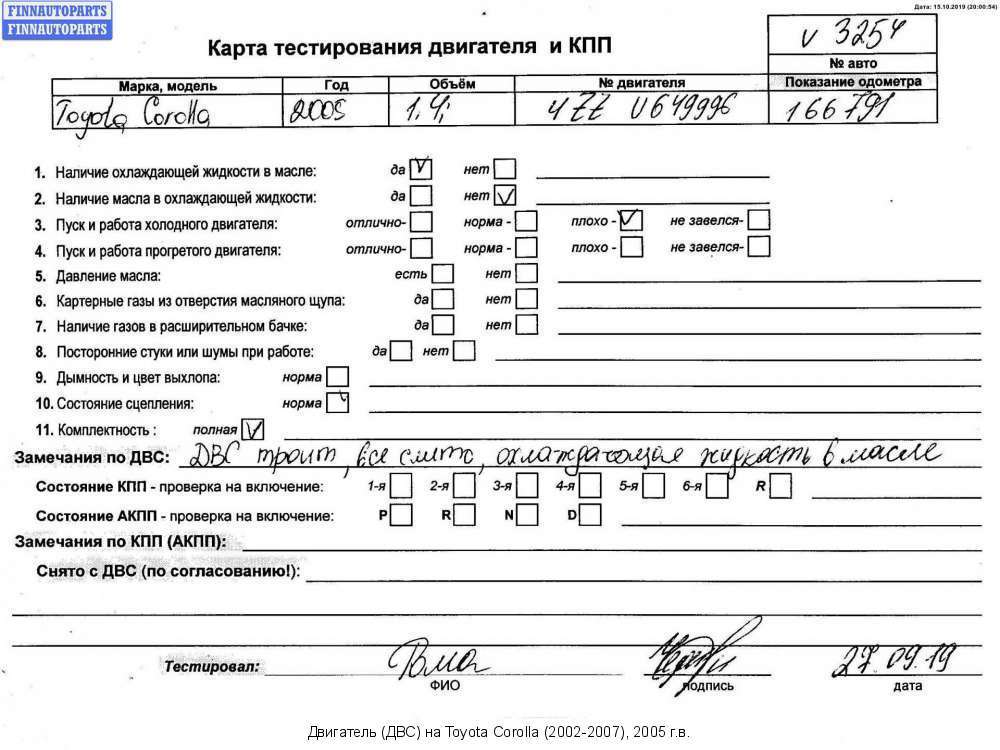 FINNAUTOPARTS
FINNAUTOPARTS
Дата: 15.10.2019 (20:00:54)
Карта тестирования двигателя и КПП
V 3254
№ авто
Марка, модель Год Объём № двигателя Показание одометра
Toyota Corolla 2005 1,4i 4ZZ U649996 166791
1. Наличие охлаждающей жидкости в масле: да нет
2. Наличие масла в охлаждающей жидкости: да нет
3. Пуск и работа холодного двигателя: отлично- норма - плохо - не завелся-
4. Пуск и работа прогретого двигателя: отлично- норма - плохо - не завелся-
5. Давление масла: есть нет
6. Картерные газы из отверстия масляного щупа: да нет
7. Наличие газов в расширительном бачке: да нет
8. Посторонние стуки или шумы при работе: да нет
9. Дымность и цвет выхлопа: норма
10. Состояние сцепления: норма
11. Комплектность : полная
Замечания по ДВС: ДВС троит, все слито, охлаждающая жидкость в масле
Состояние КПП - проверка на включение: 1-я 2-я 3-я 4-я 5-я 6-я R
Состояние АКПП - проверка на включение: P R N D
Замечания по КПП (АКПП):
Снято с ДВС (по согласованию!):
Тестировал: 27.09.19
ФИО подпись дата
Двигатель (ДВС) на Toyota Corolla (2002-2007), 2005 г.в.